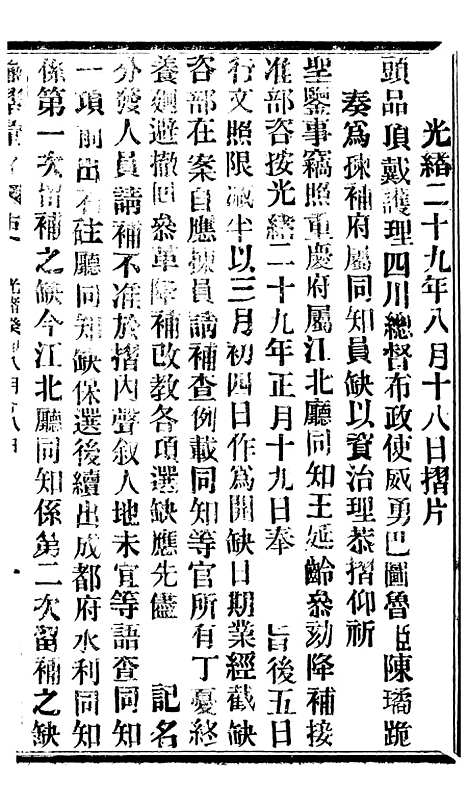 光緒二十九年八月十八日摺片
頭品頂戴護理四川總督布政使威勇巴圖魯臣陳璚跪
奏為揀補府屬同知員缺以資治理恭摺仰祈
聖鑒事竊照重慶府屬江北廳同知王延齡叅劾降補接
准部咨按光緒二十九年正月十九日奉 旨後五日
行文照限減半以三月初四日作為開缺日期業經截缺
咨部在案自應揀員請補查例載同知等官所有丁憂終
養迴避撤回叅革降補改教各項選缺應先儘 記名
分發人員請補不准於摺內聲敘人地未宜等語查同知
一項前出石砫廳同知缺保選後續出成都府水利同知
係第一次留補之缺今江北廳同知係第二次留補之缺
光緒癸卯八月十八日